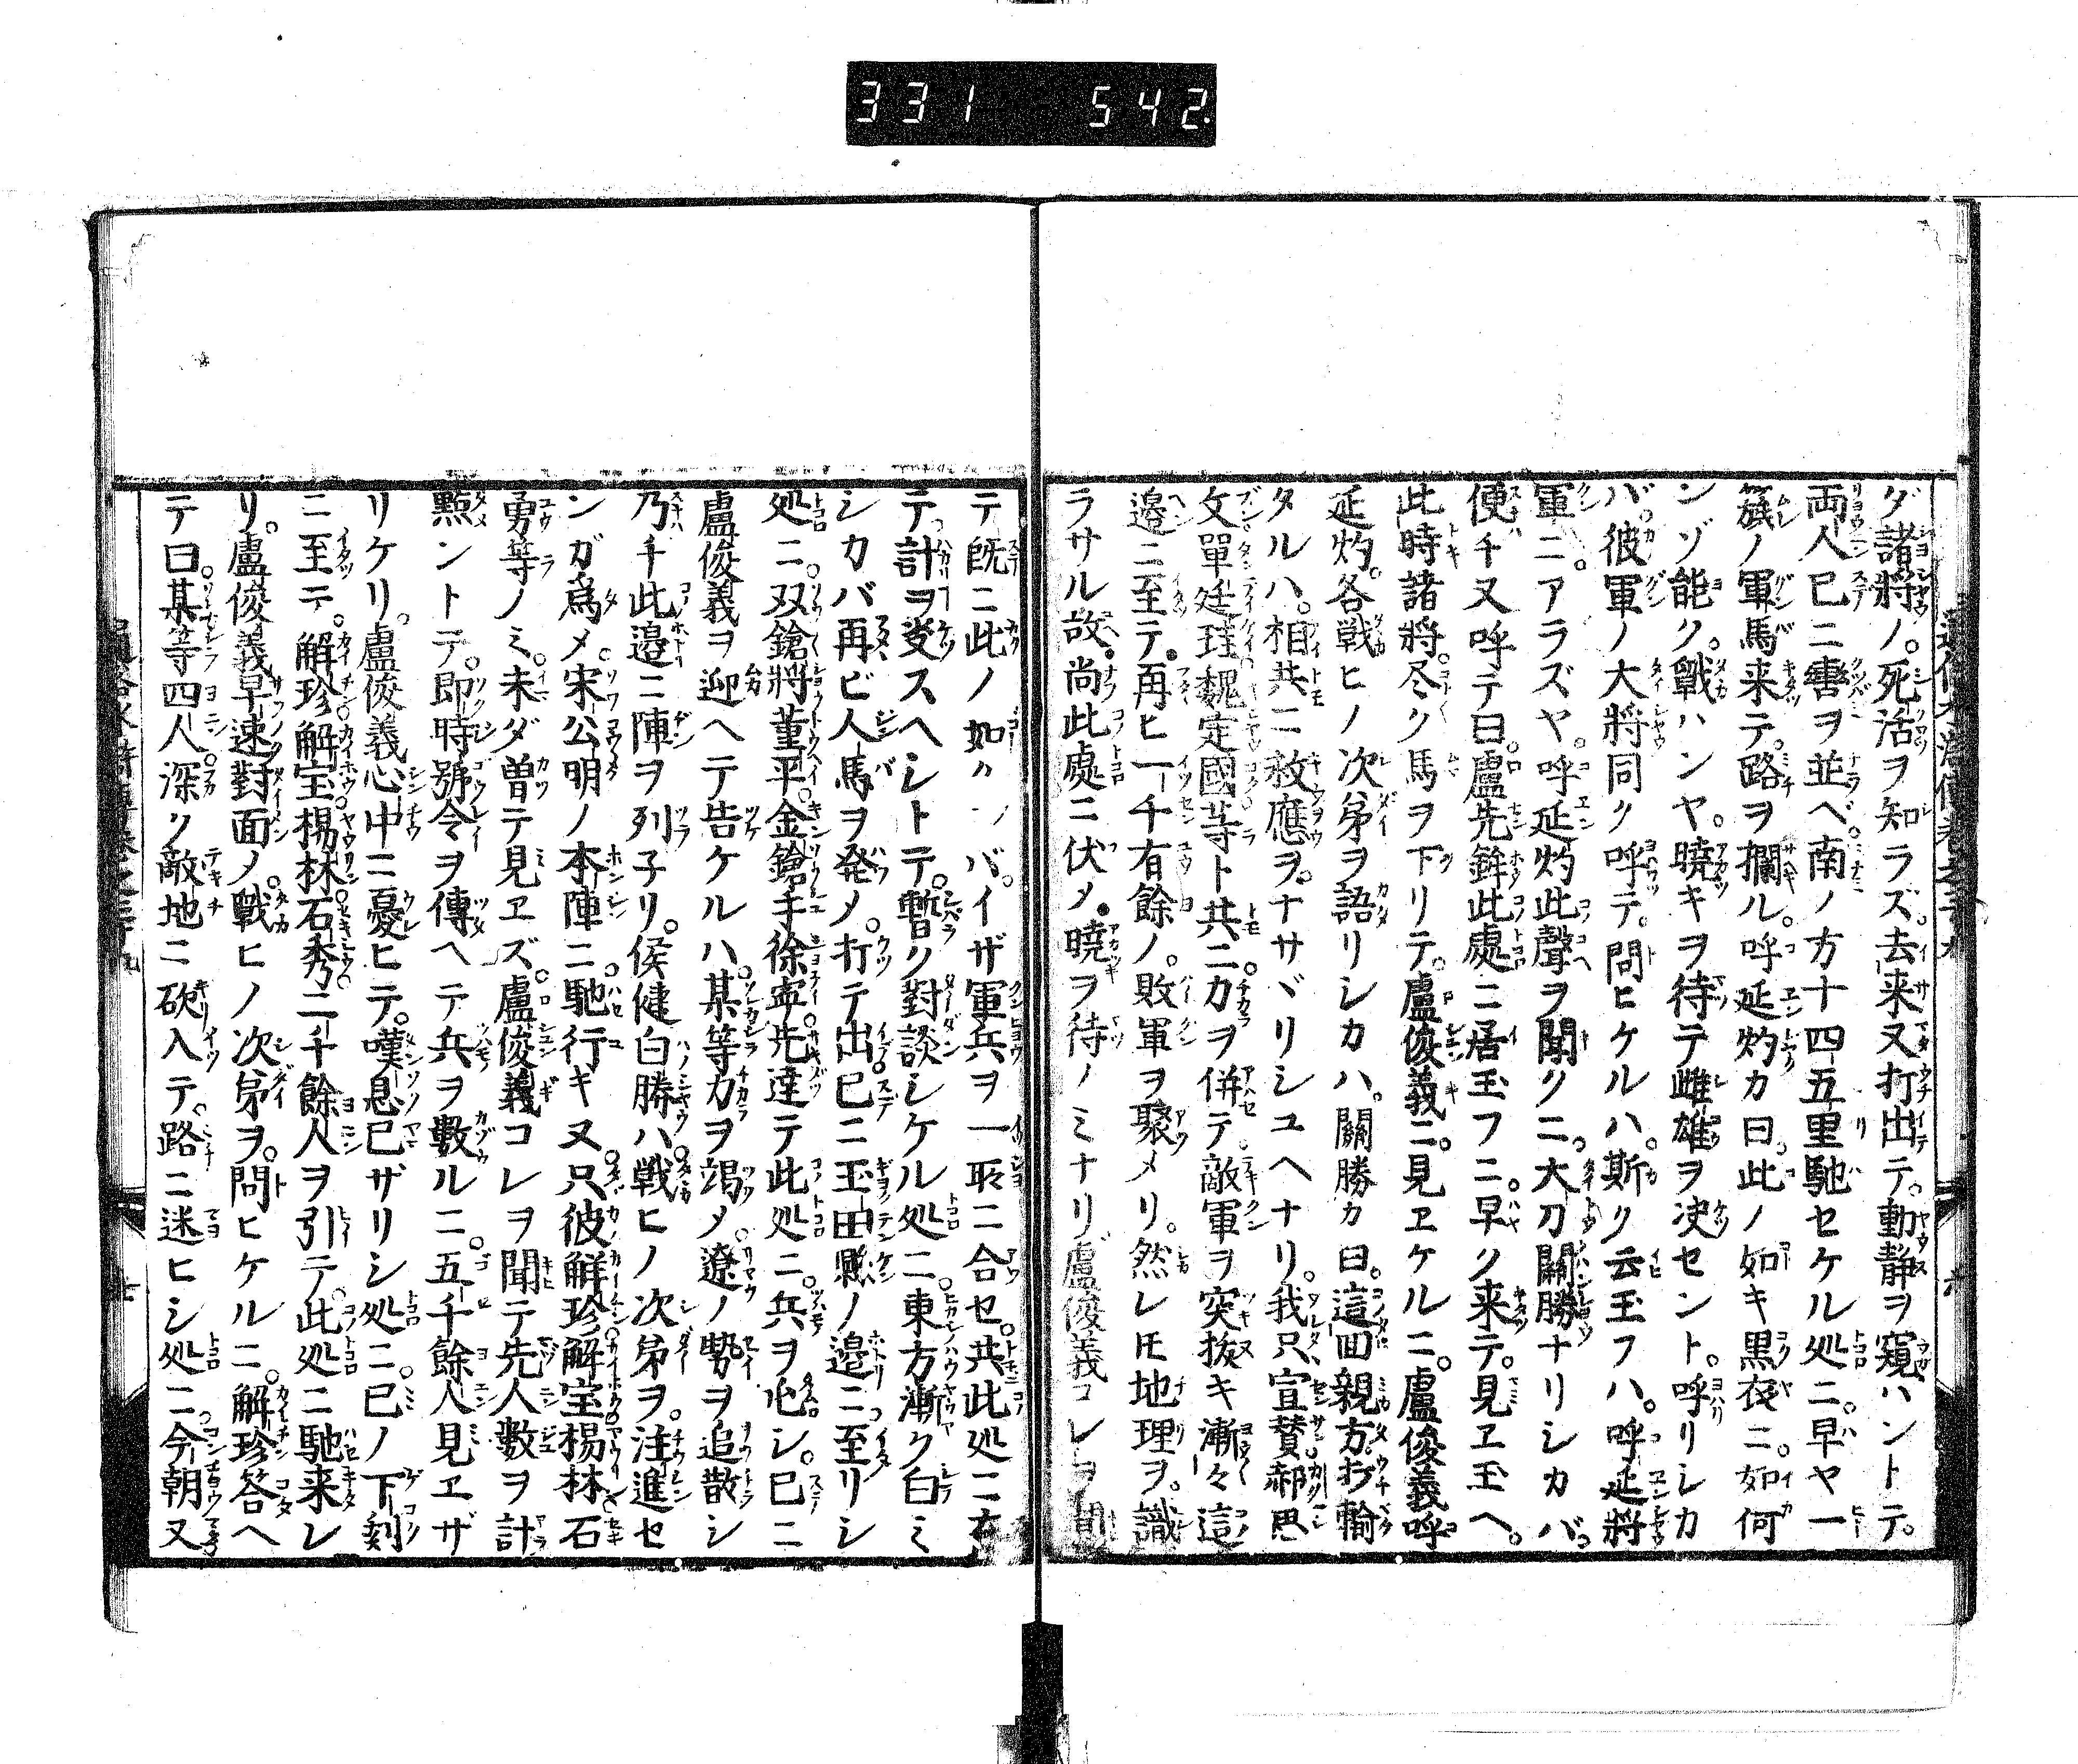 331 542.
ダ諸將ノ。死活ヲ知ラズ。去来又打出テ。動静ヲ窺ハントテ。
両人已ニ轡ヲ並ベ。南ノ方十四五里馳セケル処ニ。早ヤ一
簇ノ軍馬来テ。路ヲ攔ル。呼延灼カ曰。此ノ如キ黒衣ニ。如何
ンゾ能ク。戰ハンヤ。曉キヲ待テ雌雄ヲ决セント。呼リシカ
バ。彼軍ノ大將同ク呼テ。問ヒケルハ。斯ク云玉フハ。呼延將
軍ニ。アラズヤ。呼延灼此聲ヲ聞クニ。大刀關勝ナリシカバ
便チ又呼テ曰。盧先鉾此處ニ居玉フニ。早ク来テ。見ヱ玉ヘ。
此時諸將。尽ク馬ヲ下リテ。盧俊義ニ。見ヱケルニ。盧俊義呼
延灼。各戦ヒノ次弟ヲ語リシカハ。關勝カ曰。這回親方打輸
タルハ。相共ニ救應ヲ。ナサヾリシユヘナリ。我只宣賛郝思
文單廷珪魏定國等ト共ニ。力ヲ併テ。敵軍ヲ突拔キ漸々這
邉ニ至テ。再ヒ一千有餘ノ。敗軍ヲ聚メリ。然レ𪜈地理ヲ。識
ラサル故。尚此處ニ伏メ。曉ヲ待ノミナリ。盧俊義コレヲ聞
テ既ニ此ノ如クンバ。イザ軍兵ヲ一取ニ合セ。共此処ニ在
テ。計ヲ叓スヘシトテ。暫ク對談シケル処ニ。東方漸ク白ミ
シカバ再ビ人馬ヲ発メ。打テ出已ニ玉田縣ノ邉ニ。至リシ
処ニ。双鎗將董平。金鎗手徐寧先達テ此処ニ。兵ヲ屯シ。已ニ
盧俊義ヲ迎ヘテ告ケルハ。某等力ヲ竭メ。遼ノ勢ヲ追散シ
乃チ此邉ニ陣ヲ列子リ。侯健白勝ハ戦ヒノ次弟ヲ。注進セ
ンガ爲メ。宋公明ノ本陣ニ馳行キ又只彼解珍解宝楊林石
勇等ノミ。未ダ曽テ見ヱズ盧俊義コレヲ聞テ先人數ヲ計
㸃ントテ。即時號令ヲ傳ヘテ兵ヲ數ルニ。五千餘人見ヱザ
リケリ。盧俊義心中ニ憂ヒテ。嘆息已ザリシ処ニ。巳ノ下刻
ニ至テ。解珍解宝楊林石秀二千餘人ヲ引テ。此処ニ馳来レ
リ。盧俊義早速對面ノ。戰ヒノ次弟ヲ。問ヒケルニ。解珍答ヘ
テ曰。某等四人深ク敵地ニ砍入テ。路ニ迷ヒシ処ニ。今朝又